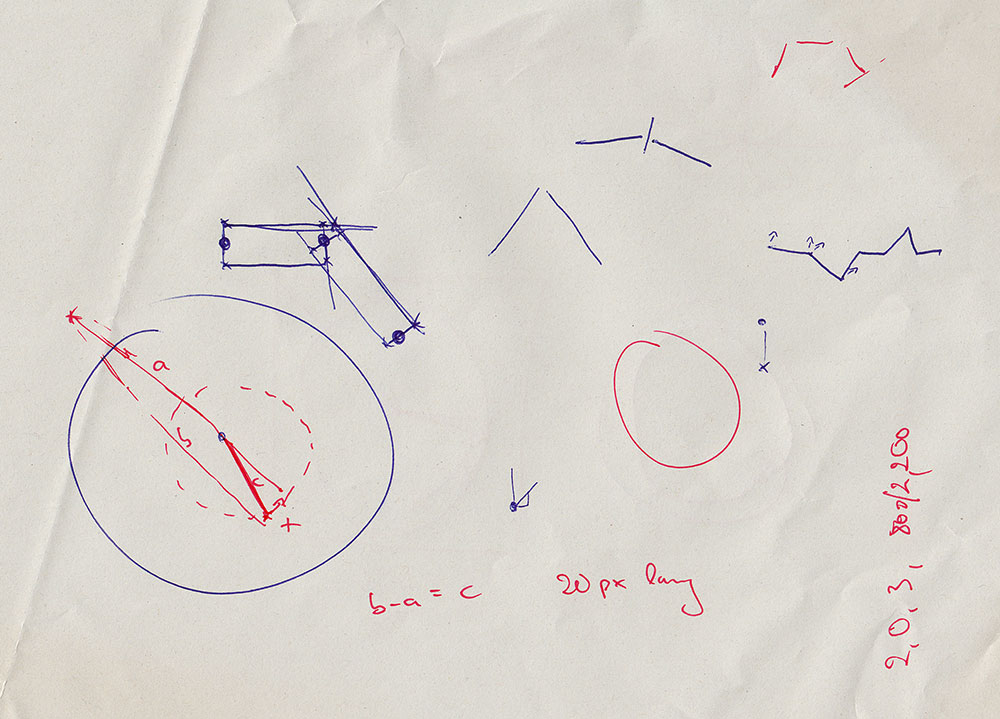 a
b
c
b-a = c
20 px lang
2, 0, 3, 800/2, 200